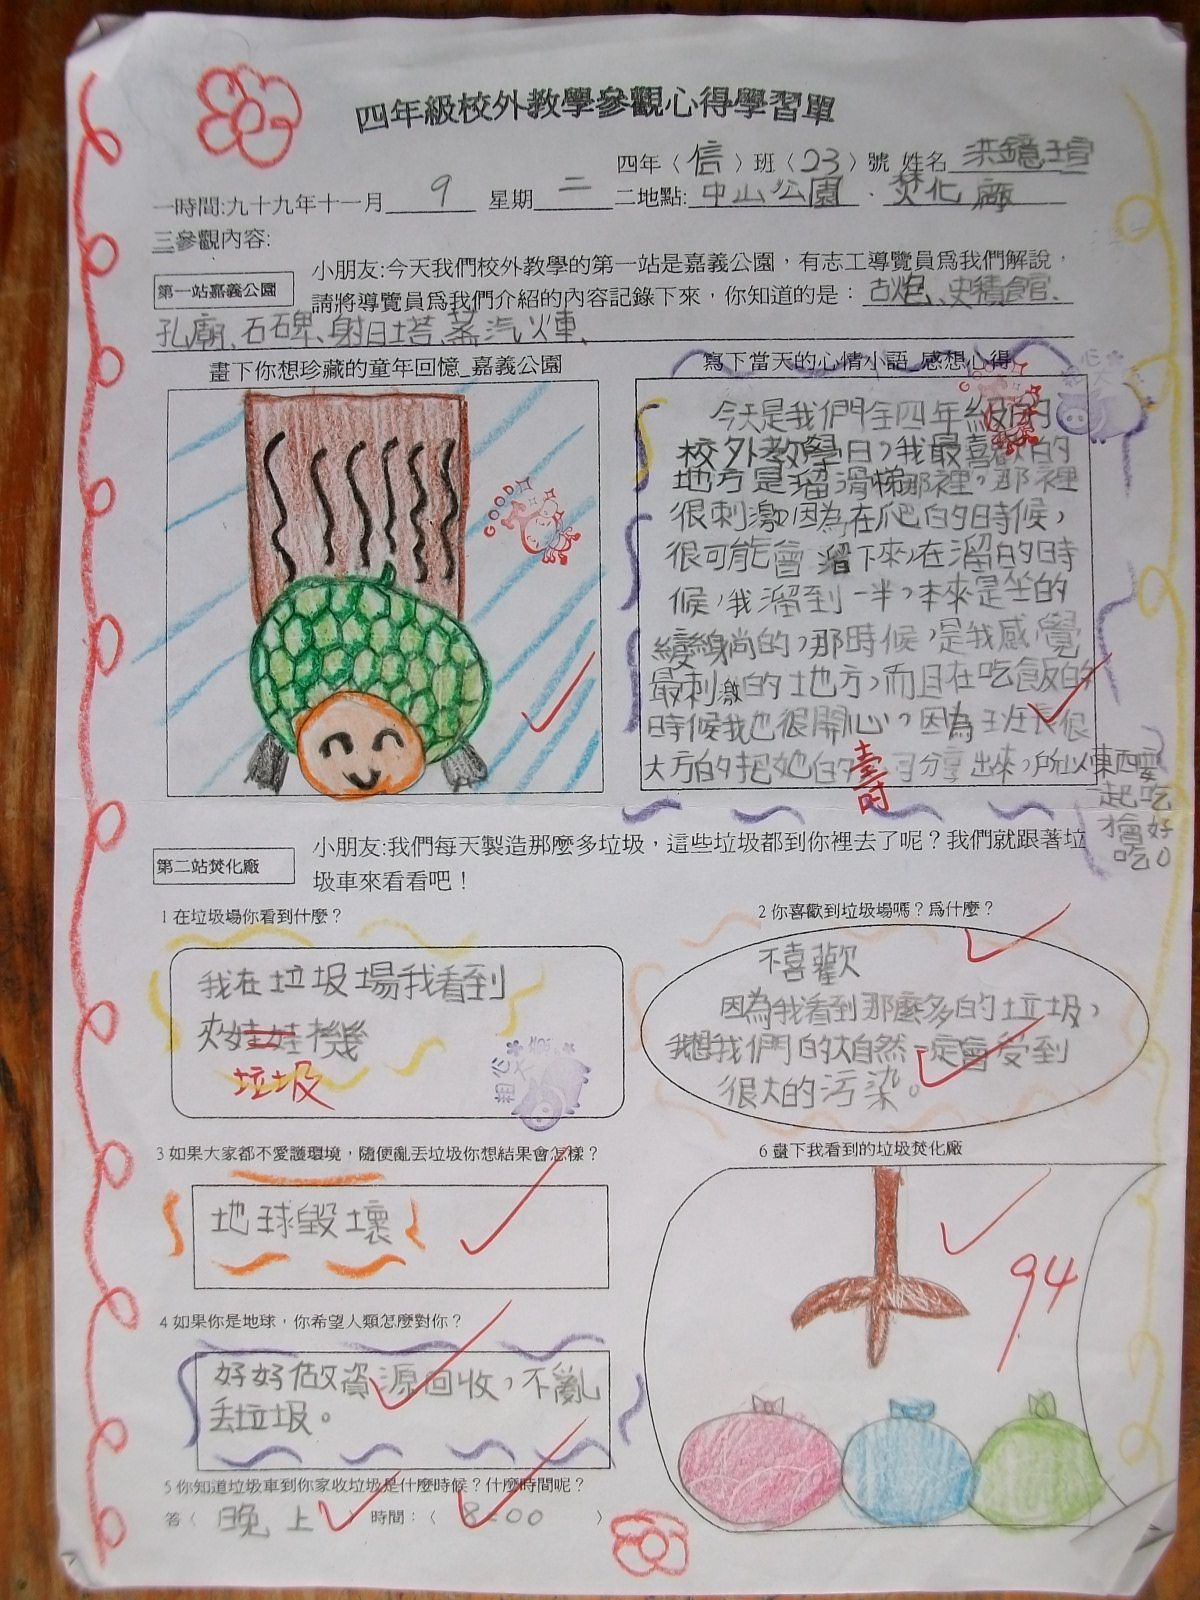 四年級校外教學參觀心得學習單
四年〈信〉班〈23〉號 姓名 洪鏡瑄
一時間:九十九年十一月 9 星期 二 二地點: 中山公園、焚化廠
三參觀內容:
第一站嘉義公園
小朋友:今天我們校外教學的第一站是嘉義公園，有志工導覽員為我們解說，
請將導覽員為我們介紹的內容記錄下來，你知道的是：古炮、史積館、
孔廟、石碑、射日塔、蒸汽火車、
畫下你想珍藏的童年回憶_嘉義公園
GOOD
寫下當天的心情小語_感想心得
今天是我們全四年級的
校外教學日，我最喜歡的
地方是溜滑梯那裡，那裡
很刺激因為在爬的時候，
很可能會溜下來，在溜的時
候，我溜到一半，本來是坐的
變躺的，那時候，是我感覺
最刺激的地方，而且在吃飯的
時候我也很開心，因為班長很
大方的把她的壽司分享出來，所以東西要
一起吃
才會好
吃。
第二站焚化廠
小朋友:我們每天製造那麼多垃圾，這些垃圾都到你裡去了呢？我們就跟著垃
圾車來看看吧！
1 在垃圾場你看到什麼？
我在垃圾場我看到
夾娃娃機
垃圾
2 你喜歡到垃圾場嗎？為什麼？
不喜歡
因為我看到那麼多的垃圾，
我想我們的大自然一定會受到
很大的污染。
3 如果大家都不愛護環境，隨便亂丟垃圾你想結果會怎樣？
地球毀壞
4 如果你是地球，你希望人類怎麼對你？
好好做資源回收，不亂
丟垃圾。
5 你知道垃圾車到你家收垃圾是什麼時候？什麼時間呢？
答〈 晚上 〉時間：〈 8:00 〉
6 畫下我看到的垃圾焚化廠
94